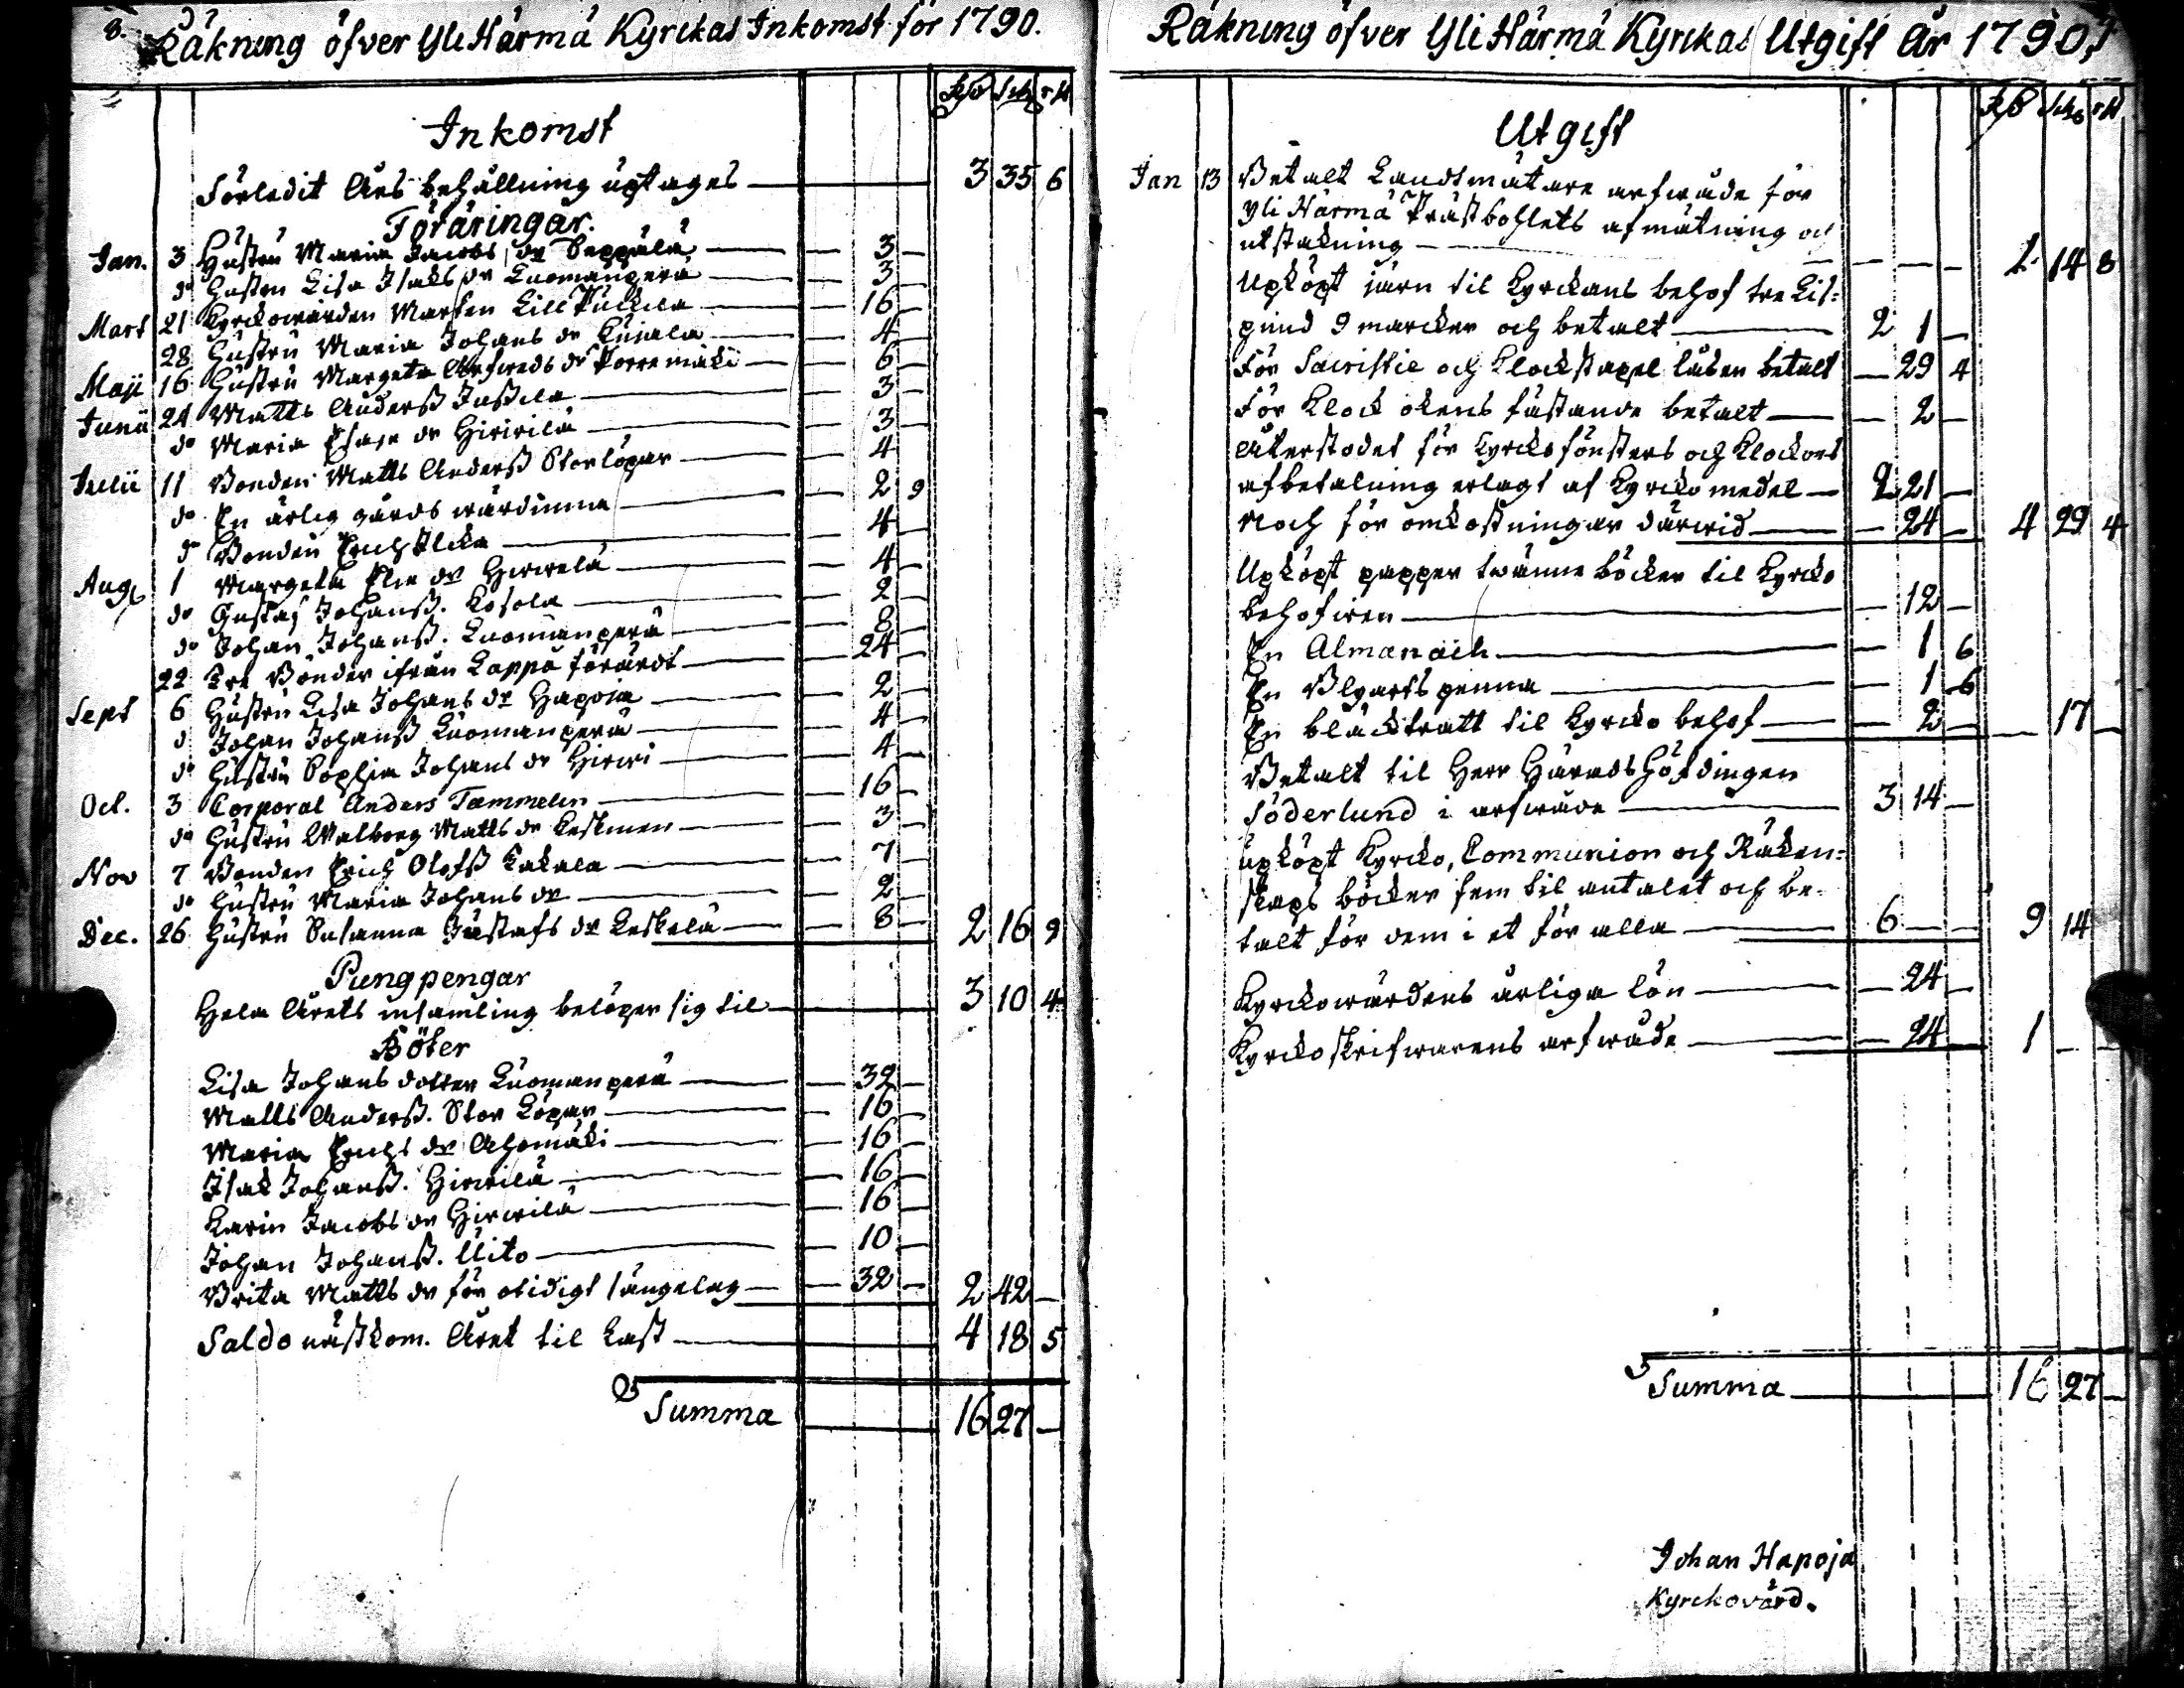 8.
Räkning öfver Yli Härmä Kyrckas Inkomst för 1790.
Rd Sch rst
Inkomst
Förledit Års behållning uptages — 3 35 6
Föräringar.
Jan. 3 Hustru Maria Jacobs dr Seppälä — 3 —
do Hustru Lisa Isaks dr Luomanperä — 3 —
Mart 21 Kyrckowärden Marten Lill Pukkila — 16 —
28 Hustru Maria Johans dr Kujala — 4 —
Maji 16 Hustru Margeta Arfweds dr Porremäki — 6 —
Junii 24 Matts Anderss Jussila — 3 —
do Maria Esaje dr Hirwilä — 3 —
Julii 11 Bonden Matts Anderss Storlöpar — 4
do En ärlig gårds wärdinna — 2 9
do Bonden Erich Ilcka — 4 —
Aug 1 Margeta Elie dr Hirwelä — 4 —
do Gustaf Johanss. Kosola — 2 —
do Johan Johanss. Luomanperä — 8 —
22 Tre Bönder ifrån Lappo förärdt — 24 —
Sept 6 Hustru Lisa Johans dr Hapoja — 2 —
d Johan Johanss Luomanperä — 4 —
do Hustru Sophia Johans dr Hirwi — 4 —
Oct. 3 Corporal Anders Tammelin — 16 —
do Hustru Walborg Matts dr Keskinen — 3 —
Nov 7 Bonden Erich Olofss Kakela — 7 —
do Hustru Maria Johans dr — 2 —
Dec. 26 Hustru Susanna Gustafs dr Keskelä — 8 — 2 16 9
Pungpengar
Hela Årets insamling belöper sig til — 3 10 4
Böter
Lisa Johans dotter Luomanperä — 32 —
Matts Anderss. Stor Löpar — 16 —
Maria Erichs dr Ahomäki — 16 —
Isak Johanss. Hirwilä — 16 —
Karin Jacobs dr Hirwilä — 16 —
Johan Johanss. Uito — 10 —
Brita Matts dr för otidigt sängelag — 32 — 2 42 —
Saldo nästkom. Året til Last — 4 18 5
Summa — 16 27 —
Räkning öfver Yli Härmä Kyrckas Utgift År 1790.
Rd Sch rst
Utgift
Jan 13 Betalt Landtmätare arfwåde för
Yli Härmä Prästbohlets afmätning och
utstakning — 1 14 8
Upköpt järn til Kyrckans behof tre Lis=
pund 9 marcker och betalt — 2 1 —
För Sacristie och Klockstapel låsen betalt — 29 4
För Klock okens fästande betalt — 2 —
Återstodet för Kyrckofönsters och Klockors
afbetalning erlagt af Kyrcko medel — 2 21 —
Noch för omkostningar därwid — 24 — 4 29 4
Upköpt papper twänne böcker til Kyrcko
behofwen — 12 —
En Almanach — 1 6
En Blyarts penna — 1 6
En bläcktratt til Kyrcko behof — 2 — 17 —
Betalt til Herr Häradshöfdingen
Söderlund i arfwåde — 3 14 —
upköpt Kyrcko, Communion och Räken=
skaps böcker fem til antalet och be=
talt för dem i et för alla — 6 — 9 14
Kyrckowärdens årliga lön — 24 —
Kyrckoskrifwarens arfwåde — 24 — 1 — —
Summa — 16 27 —
Johan Hapoja
Kyrckovärd.